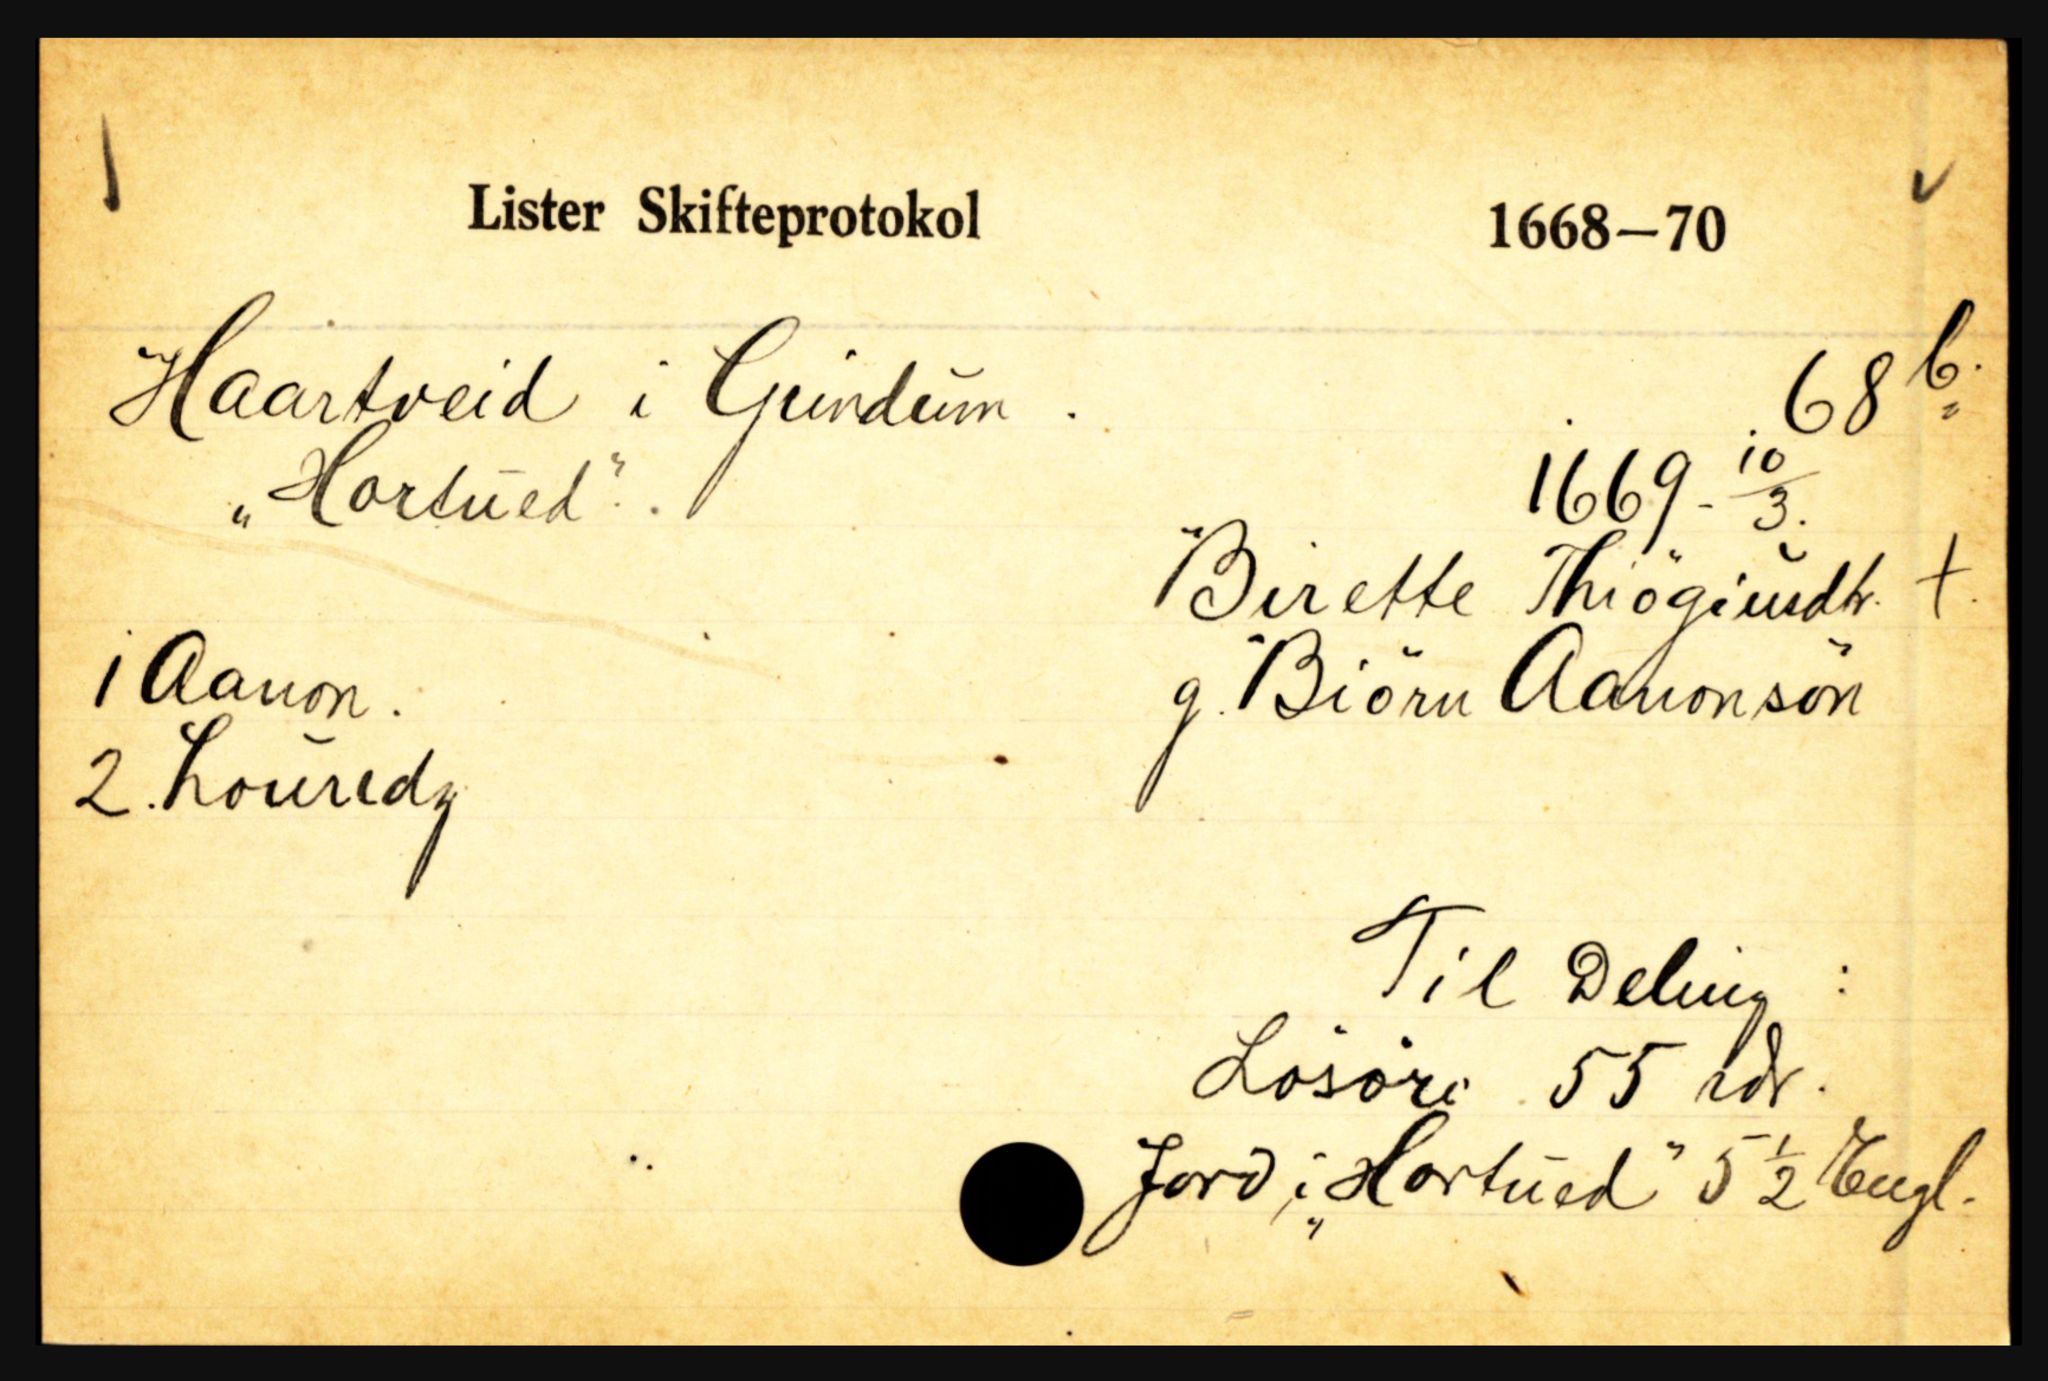 Lister Skifteprotokol 1668–70
Haartveid i Grindum. 68 b.
"Hortued".
1669 - 10/3.
Birette Thiögiusdtr. +
1 Aanon. g. Biörn Aanonsön
2. Louredz
Til Deling :
Lösöre 55 rdr.
Jord i "Hortued" 5 1/2 Engl.